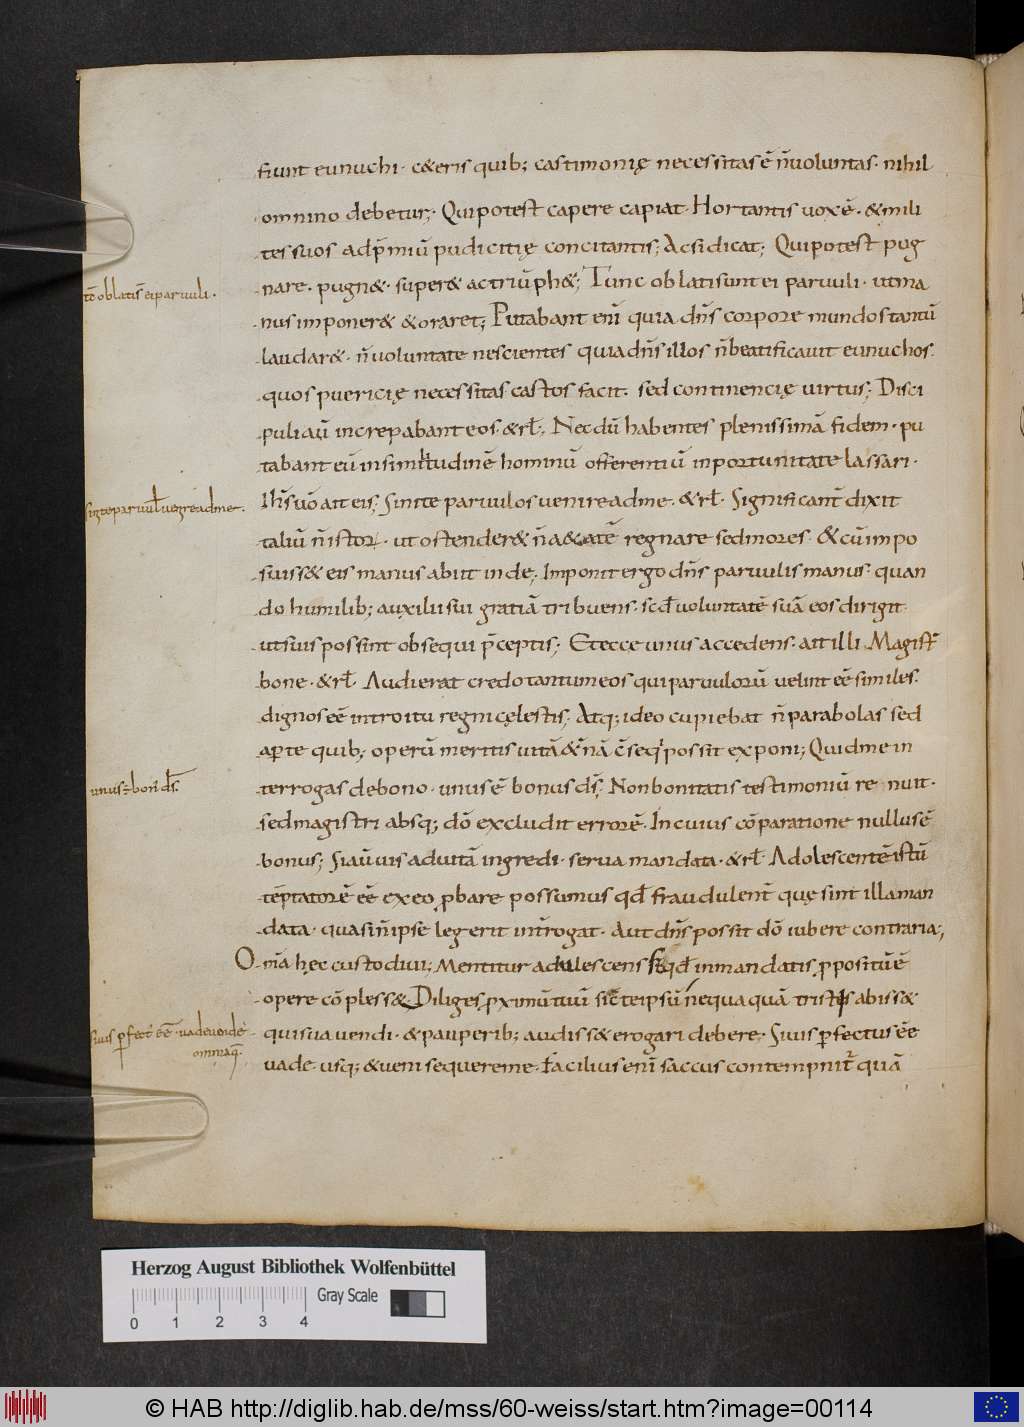 fiunt eunuchi · c&eris quib; castimonię necessitas ē n̄ voluntas · nihil
omnino debetur; Qui potest capere capiat · Hortantis vox ē · & mili
tes suos ad p̄miū pudicitię concitantis; Ac si dicat; Qui potest pug
nare · pugn& · super& ac triūph&; Tunc oblati sunt ei parvuli · ut ma
tc̄ oblatis̄ ei parvuli ·
nus imponer& & oraret; Putabant enī quia dn̄s corpore mundos tantū
laudar& · n̄ voluntate nescientes quia dn̄s illos n̄ beatificavit eunuchos ·
quos puericię necessitas castos facit · sed continencię virtus; Disci
puli aū increpabant eos · & rł; Necdū habentes plenissimā fidem · pu
tabant eū in similitudinē hominū offerentiū inportunitate lassari ·
Ih̄s vō ait eis; Sinite parvulos venire ad me · & rł · Significant̄ dixit
sinite parvuł venire ad me ·
taliū n̄ istor̄ · ut ostender& n̄ a&atē regnare sed mores · & cū impo
suiss& eis manus abiit inde; Imponit ergo dn̄s parvulis manus · quan
do humilib; auxilii sui gratiā tribuens · scd̄ voluntatē suā eos dirigit ·
ut suis possint obsequi p̄ceptis; Et ecce unus accedens · ait illi Magist̄
bone · & rł · Audierat credo tantum eos qui parvulorū velint eē similes ·
dignos eē introitu regni cęlestis; Atq; ideo cupiebat n̄ parabolas sed
aperte quib; operū meritis vitā &̄nā c̄seqi possit exponi; Quid me in
terrogas de bono · unus ē bonus dś; Non bonitatis testimoniū renuit ·
unus ē bon̄ dś ·
sed magistri absq; dō excludit errorē · In cuius cōparatione nullus ē
bonus; Si aū vis ad vitā ingredi · serva mandata · & rł · Adolescentē istū
tēptatorē eē ex eo ꝓbare possumus qd̄ fraudulent̄ quę sint illa man
data · quasi n̄ ipse legerit int̄rogat · Aut dn̄s possit dō iubere contraria;
Om̄ia hęc custodivi; Mentitur adulescens si qd̄ in mandatis ꝓpositū ē
opere cōpless& Diliges ꝓximū tuū sic̄ te ipsū nequaquā tristis abiss&
qui sua vendi · & pauperib; audiss& erogari debere · Si vis ꝑfectus eē
si vis ꝑfect̄ eē · vade vende
omniaq̄ ·
vade · usq; & veni sequere me · Facilius enī saccus contempnit̄ quā
Herzog August Bibliothek Wolfenbüttel
Gray Scale
0 1 2 3 4
© HAB http://diglib.hab.de/mss/60-weiss/start.htm?image=00114